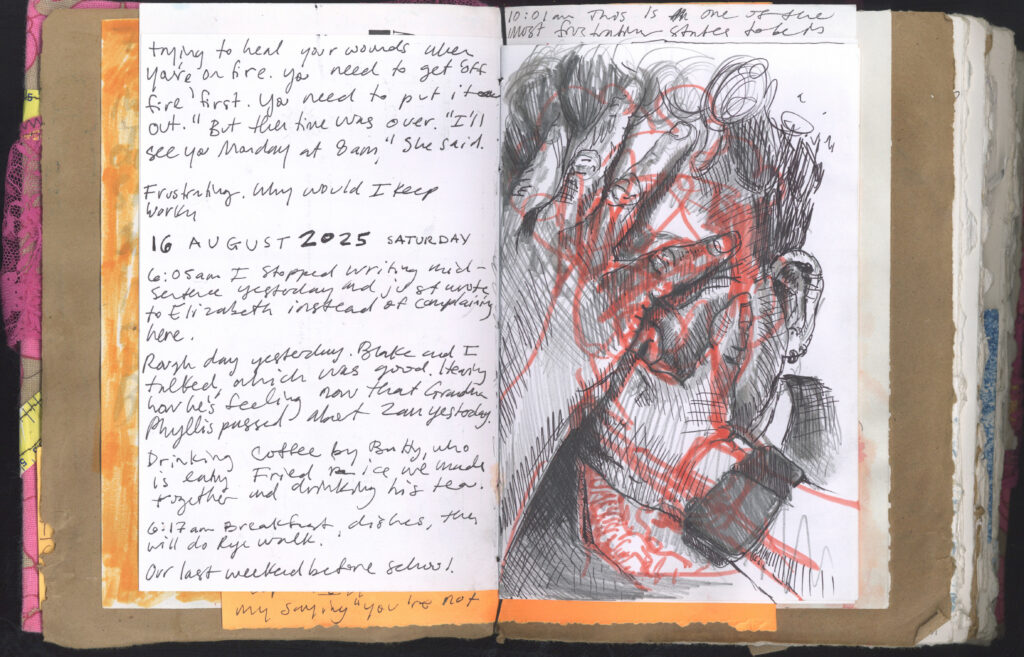 trying to heal your wounds when
you're on fire. You need to get off
fire first. You need to put it
out." But then time was over. "I'll
see you Monday at 8am," she said.
Frustrating. Why would I keep
workn
16 AUGUST 2025 SATURDAY
6:05am I stopped writing mid-
sentence yesterday and just wrote
to Elizabeth instead of complaining
here.
Rough day yesterday. Blake and I
talked, which was good. Hearing
how he's feeling now that Grandma
Phyllis passed about 2am yestoday.
Drinking coffee by Buddy, who
is eating Fried rice we made
together and drinking his tea.
6:17am Breakfast, dishes, then
will do Rye walk.
Our last weekend before school.
my saying "you're not
10:01am This is one of the
most frustration states to be in